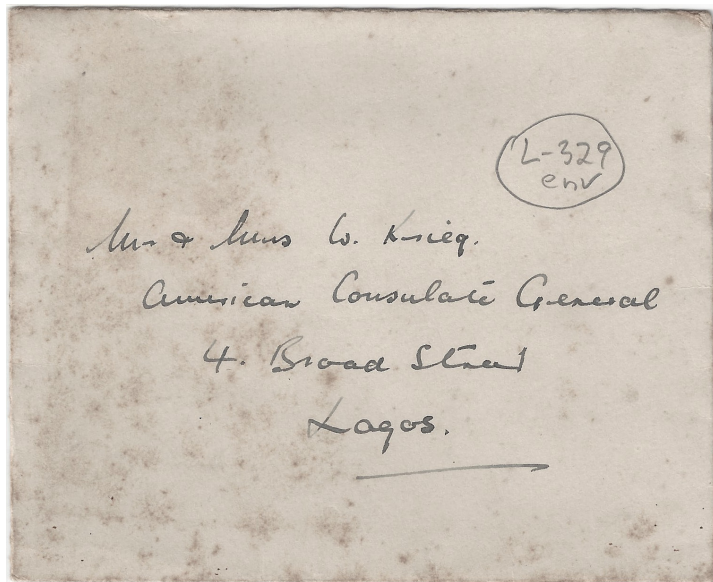 L-329
env
Mr & Mrs W. Krieg.
American Consulate General
4. Broad Street
Lagos.